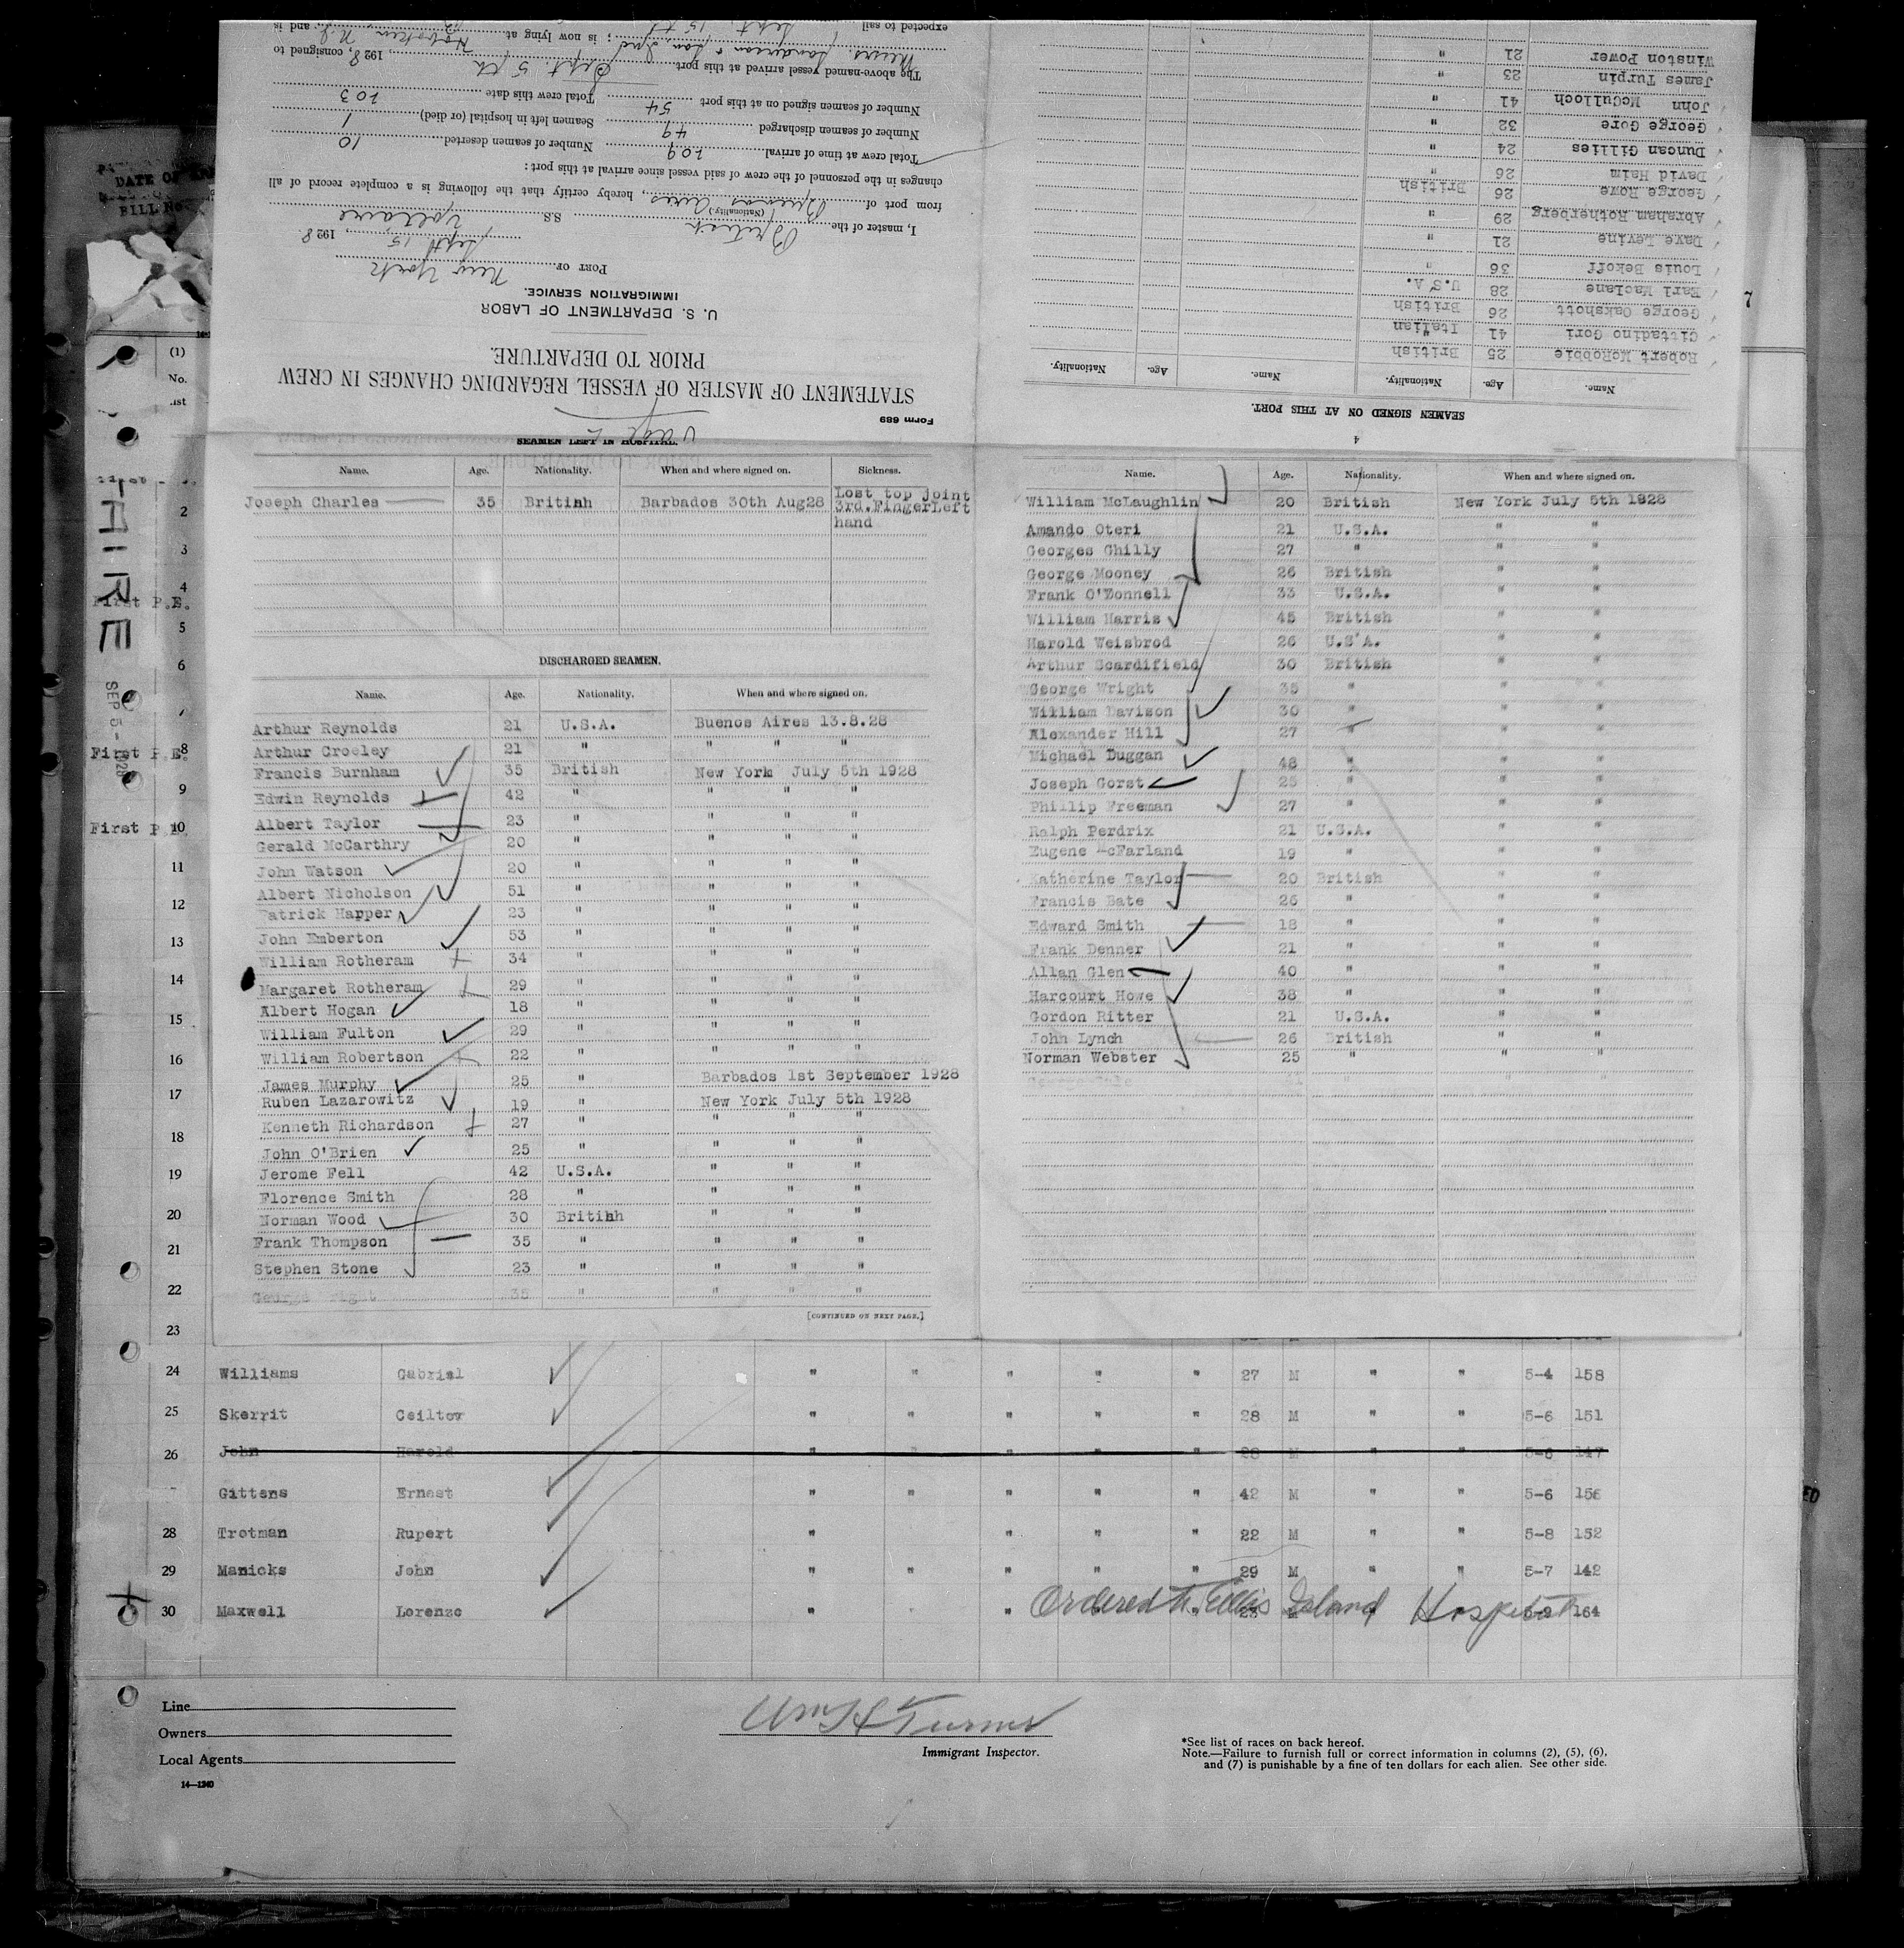 DATE OF
BILL No.
expected to sail Sept. 15th
Messrs. Sanderson & Son, Inc ; is now lying at Hoboken N.J., and is
The above-named vessel arrived at this port Sept. 5th, 1928, consigned to
Number of seamen signed on at this port 54 Total crew this date 203
Number of seamen discharged 49 Seamen left in hospital (or died) 1
Total crew at time of arrival 209 Number of seamen deserted 10
changes in the personnel of the crew of said vessel since arrival at this port:
from port of Buenos Aires, hereby certify that the following is a complete record of all
I, master of the British (Nationality.) S.S. Voltaire
Port of New York Sept 15, 1928
IMMIGRATION SERVICE.
U. S. DEPARTMENT OF LABOR
PRIOR TO DEPARTURE.
STATEMENT OF MASTER OF VESSEL REGARDING CHANGES IN CREW
Form 689
Winston Power 21 "
James Turpin 23 "
John McCulloch 41 "
George Gore 32 "
Duncan Gillies 24 "
David Haim 26 "
George Rowe 26 British
Abraham Rotherberg 29 "
Dave Levine 21 "
Louis Bekoff 36 "
Earl Maclane 28 U.S.A.
George Oakshott 26 British
Cittadino Gori 41 Italian
Robert McRobbie 25 British
Name. Age. Nationality. Name. Age. Nationality.
SEAMEN SIGNED ON AT THIS PORT.
4
SEAMEN LEFT IN HOSPITAL.
Name. Age. Nationality. When and where signed on. Sickness.
Joseph Charles 35 Britihh Barbados 30th Aug28 Lost top joint
3rd.FingerLeft
hand
DISCHARGED SEAMEN.
Name. Age. Nationality. When and where signed on.
Arthur Reynolds 21 U.S.A. Buenos Aires 13.8.28
Arthur Croeley 21 " " " "
Francis Burnham 35 British New York July 5th 1928
Edwin Reynolds 42 " " " "
Albert Taylor 23 " " " "
Gerald McCarthry 20 " " " "
John Watson 20 " " " "
Albert Nicholson 51 " " " "
Patrick Harper 23 " " " "
John Emberton 53 " " " "
William Rotheram 34 " " " "
Margaret Rotheram 29 " " " "
Albert Hogan 18 " " " "
William Fulton 29 " " " "
William Robertson 22 " " " "
James Murphy 25 " Barbados 1st September 1928
Ruben Lazarowitz 19 " New York July 5th 1928
Kenneth Richardson 27 " " " "
John O'Brien 25 " " " "
Jerome Fell 42 U.S.A. " " "
Florence Smith 28 " " " "
Norman Wood 30 Britihh " " "
Frank Thompson 35 " " " "
Stephen Stone 23 " " " "
George Wright 35 " " " "
[CONTINUED ON NEXT PAGE.]
Name. Age. Nationality. When and where signed on.
William McLaughlin 20 British New York July 5th 1928
Amando Oteri 21 U.S.A. " "
Georges Ghilly 27 " " "
George Mooney 26 British " "
Frank O'Donnell 33 U.S.A. " "
William Harris 45 British " "
Harold Weisbrod 26 U.S.A. " "
Arthur Scardifield 30 British " "
George Wright 35 " " "
William Davison 30 " " "
Alexander Hill 27 " " "
Michael Duggan 48 " " "
Joseph Gorst 25 " " "
Phillip Freeman 27 " " "
Ralph Perdrix 21 U.S.A. " "
Eugene McFarland 19 " " "
Katherine Taylor 20 British " "
Francis Bate 26 " " "
Edward Smith 18 " " "
Frank Denner 21 " " "
Allan Glen 40 " " "
Harcourt Howe 38 " " "
Gordon Ritter 21 U.S.A. " "
John Lynch 26 British " "
Norman Webster 25 " " "
(1)
No.
2
3
4
First P.E.
5
6
SEP 5- 1928
7
First P.E. 8
9
First P.E. 10
11
12
13
14
15
16
17
18
19
20
21
22
23
24 Williams Gabriel " " " " " 27 M " " 5-4 158
25 Skerrit Ceiltov " " " " " 28 M " " 5-6 151
26 John Harold " " " " " 28 M " " 5-6 147
Gittens Ernest " " " " " 42 M " " 5-6 156
28 Trotman Rupert " " " " 22 M " " 5-8 152
29 Manicks John " " " " " 29 M " " 5-7 142
30 Maxwell Lorenzo " " Ordered to Ellis Island Hospital 164
Line
Owners
Local Agents
14—1240
Wm H Turner
Immigrant Inspector.
*See list of races on back hereof.
Note.—Failure to furnish full or correct information in columns (2), (5), (6),
and (7) is punishable by a fine of ten dollars for each alien. See other side.